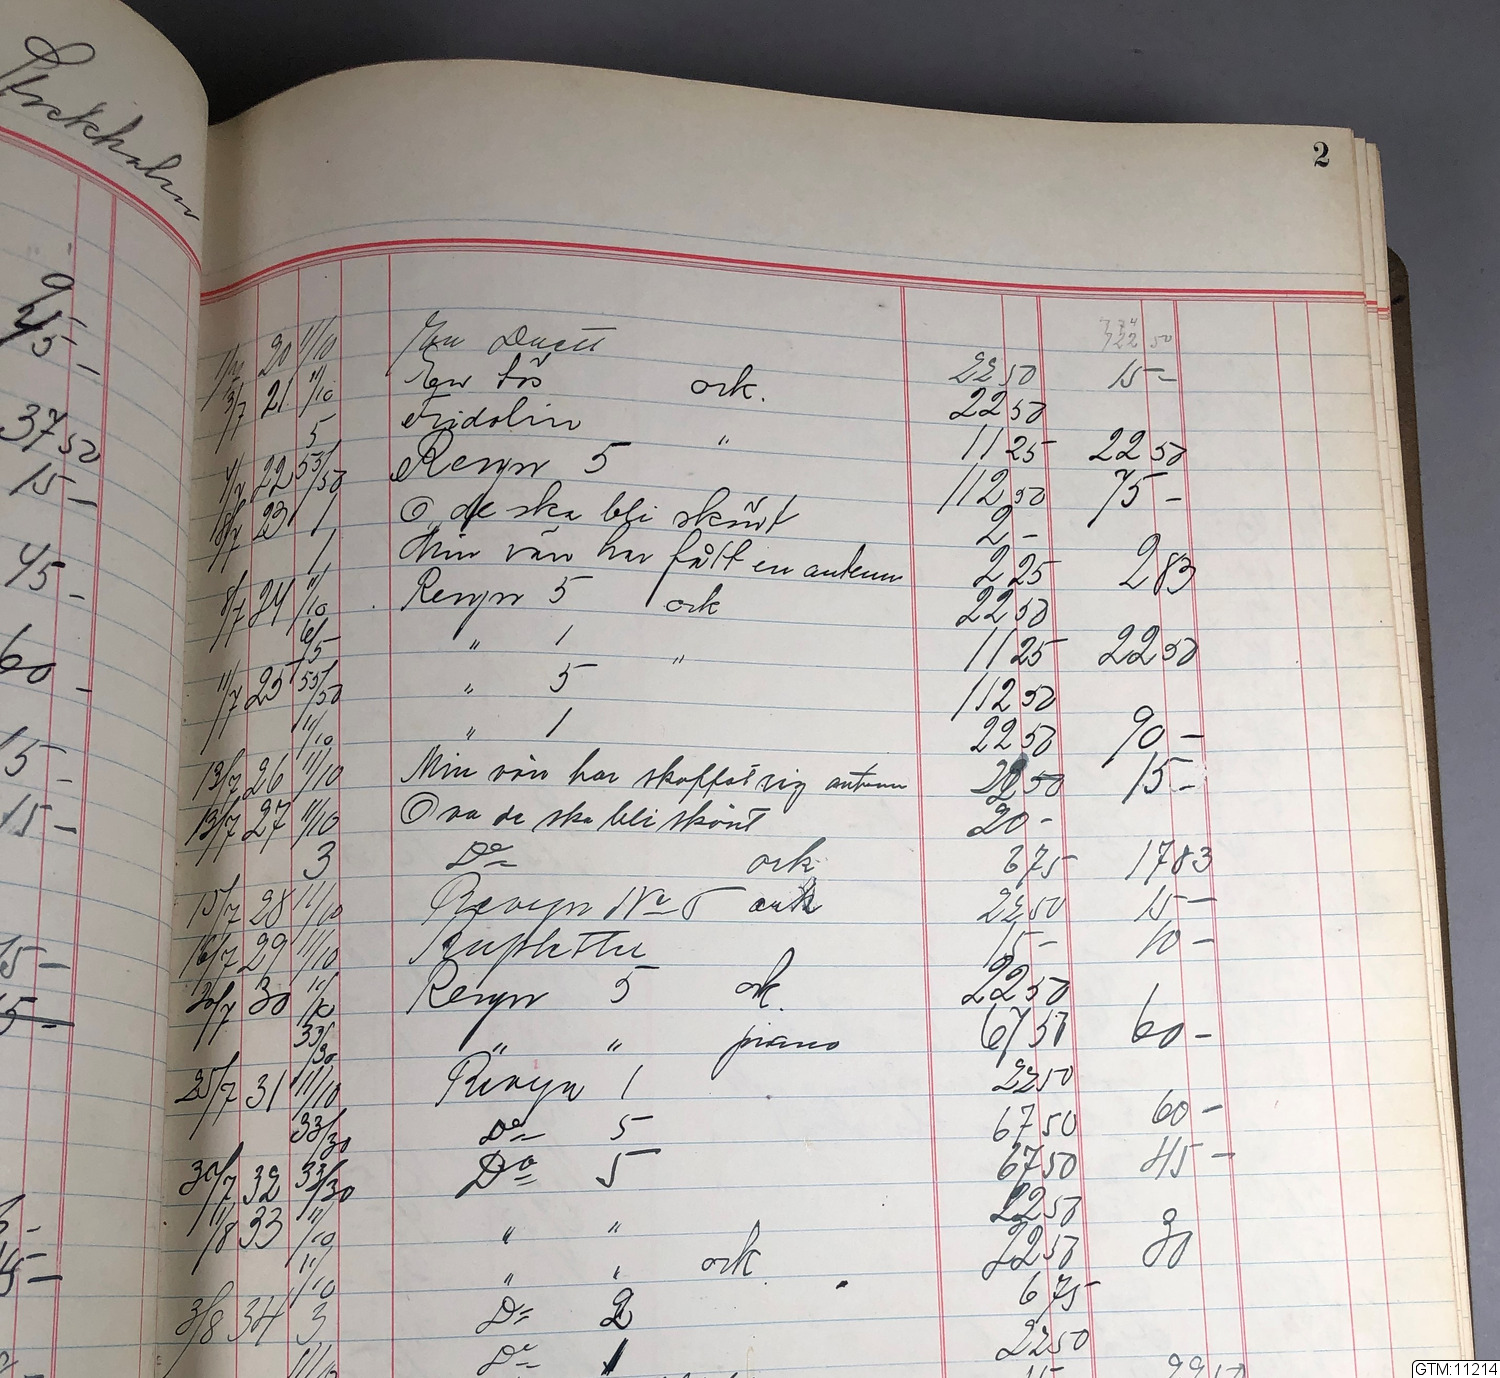 Stockholm
2
1/7 20 11/10 En Duett 22 50 15 -
3/7 21 11/10 En tös ork. 22 50
5 Fridolin " 11 25 22 50
4/7 22 55/50 Revyn 5 112 50 75 -
8/7 23 1 O, de ska bli skönt 2 -
1 Min vän har fått en antenn 2 25 2 83
8/7 24 11/10 Revyn 5 ork 22 50
6/5 " 1 " 11 25 22 50
11/7 25 55/50 " 5 112 50
11/10 " 1 22 50 90 -
12/7 26 11/10 Min vän har skaffat sig antenn 22 50 15 -
13/7 27 11/10 O va de ska bli skönt 20 -
3 Do ork 6 75 17 83
15/7 28 11/10 Revyn No 5 ork 22 50 15 -
16/7 29 11/10 15 - 10 -
20/7 30 11/10 Revyn 5 ork. 22 50
33/30 " " piano 67 50 60 -
25/7 31 11/10 Revyn 1 22 50
33/30 Do 5 67 50 60 -
30/7 32 33/30 Do 5 67 50 45 -
1/8 33 11/10 " " 22 50
11/10 " " ork 22 50 30
3/8 34 3 Do 2 6 75
11/10 Do 1 22 50
37 50
15 -
45 -
60 -
15 -
15 -
15 -
GTM:11214